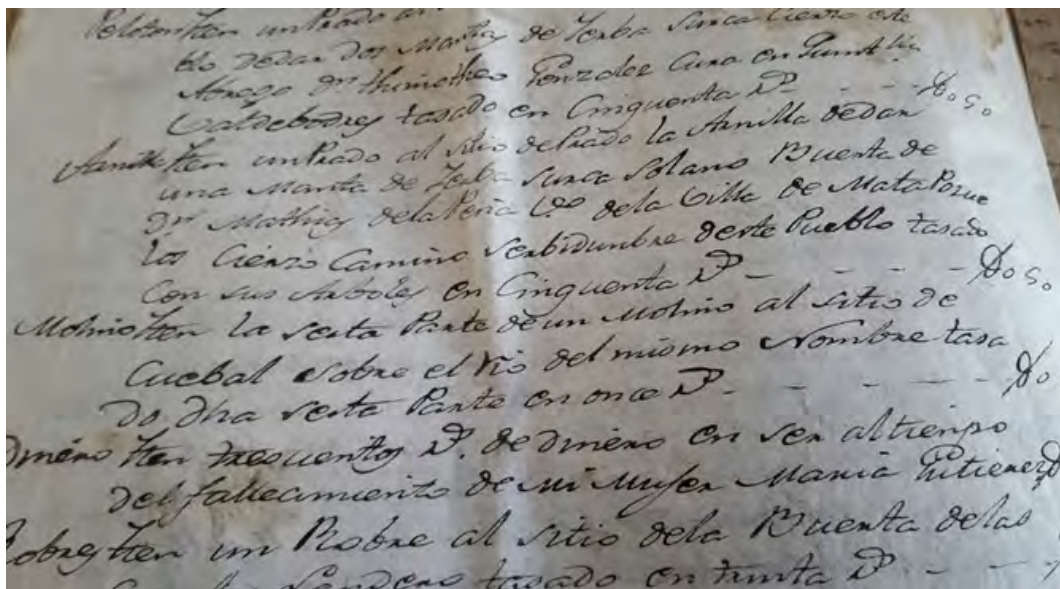 Peloton Iten un Prado al
blo dedan dos Mantas de Yerba Surca Cierzo este
Abrego Dn Thimotheo Gonzalez Cura en Quintla
Valdebodres tasado en Cinquenta Ds - - - - Do 50
Arnilla Iten un Prado al sitio del Prado la Arnilla dedan
una Manta de Yerba Surca Solano Buerta de
Dn Mathias dela Peña Vco dela Villa de Mata Porque
los Cierzo Camino Serbidunbre deste Pueblo tasado
Con sus Arboles en Cinquenta Ds - - - - - Do 50
Molino Iten la sesta Parte de un Molino al sitio de
Cuebal sobre el rio del mismo Nombre tasa
do dha sesta Parte en once Ds - - - - - Do
Dinero Iten trescientos Ds. de Dinero en ser al tienpo
del fallecimiento de mi Muger Maria Gutierez
Robres Iten un Robre al sitio dela Buerta delas
Sendero tasado en treinta Ds - -